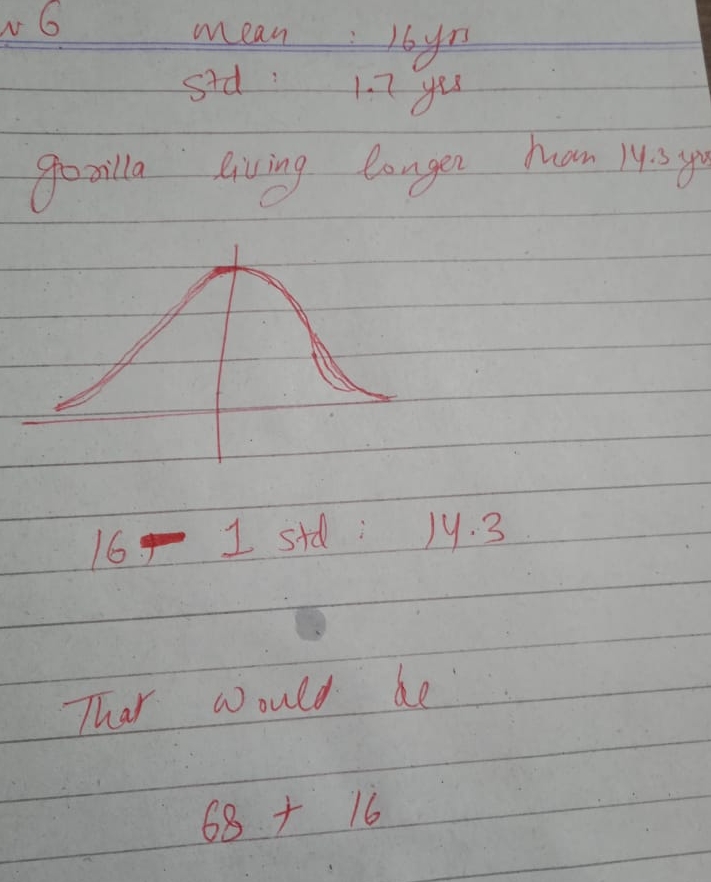 6 mean : 16 yrs
std : 1.7 yrs
gorilla living longer than 14.3 yrs
16 - 1 std : 14.3
That would be
68 + 16